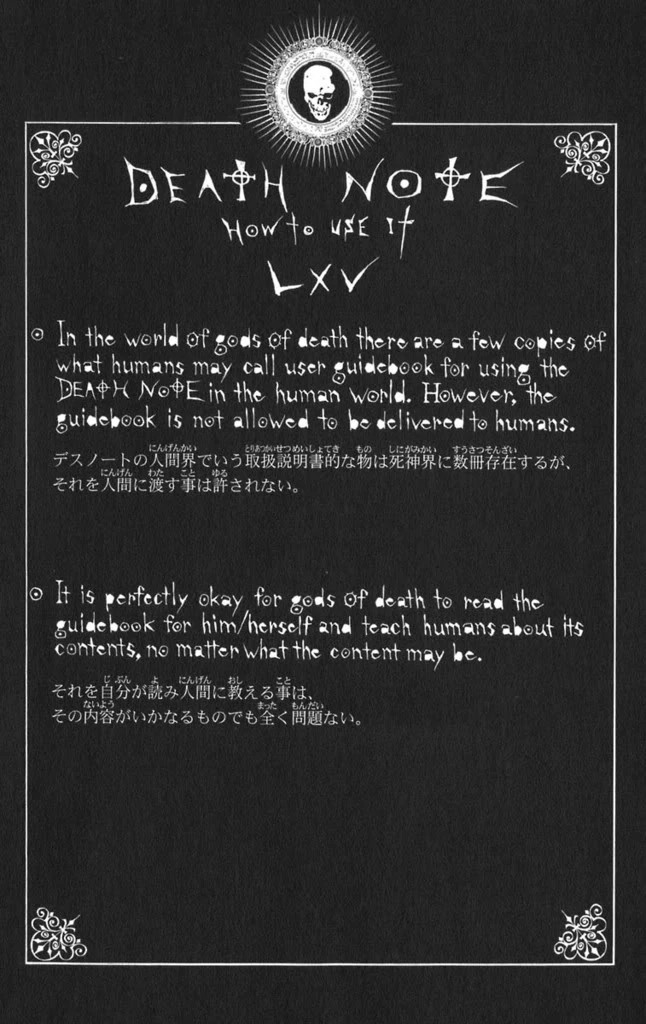 DEATH NOTE
HOW to USE It
LXV
In the world of gods of death there are a few copies of
what humans may call user guidebook for using the
DEATH NOTE in the human world. However, the
guidebook is not allowed to be delivered to humans.
デスノートの人間界でいう取扱説明書的な物は死神界に数冊存在するが、
それを人間に渡す事は許されない。
It is perfectly okay for gods of death to read the
guidebook for him/herself and teach humans about its
contents, no matter what the content may be.
それを自分が読み人間に教える事は、
その内容がいかなるものでも全く問題ない。